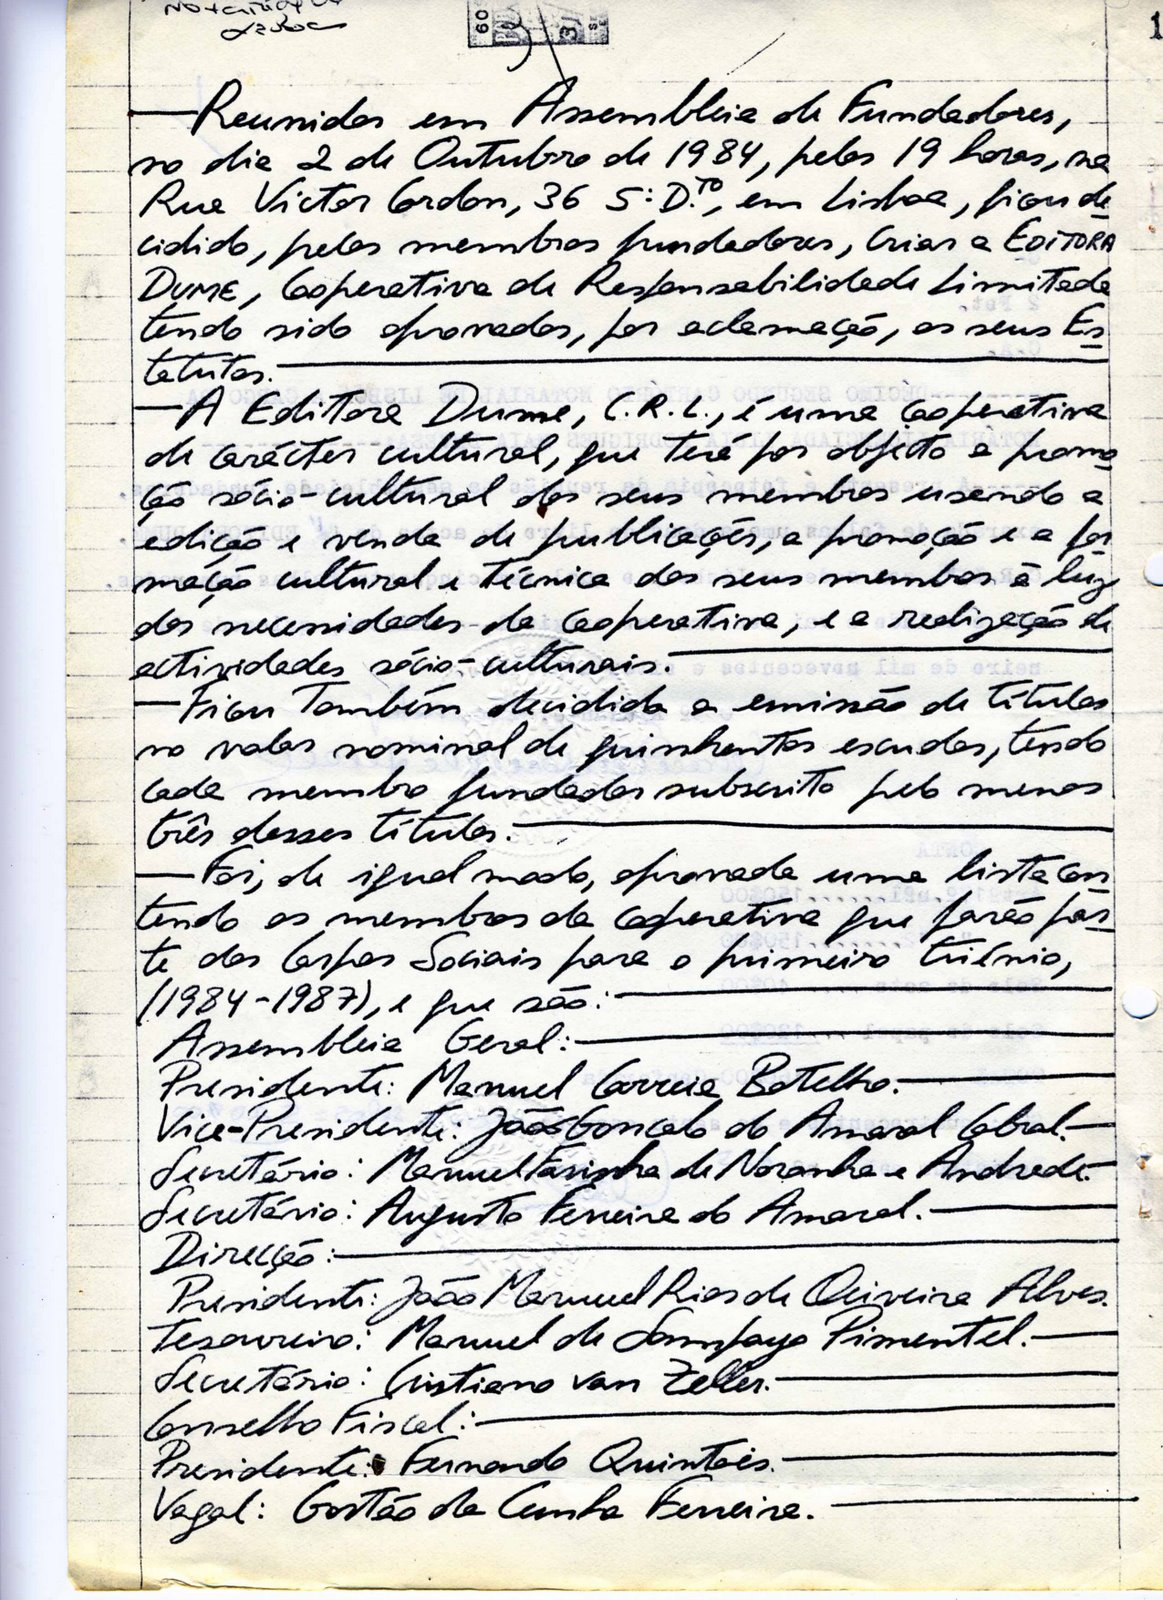 1
60
—Reunidos em Assembleia de Fundadores,
no dia 2 de Outubro de 1984, pelas 19 horas, na
Rua Victor Cordon, 36 5º D.TO, em Lisboa, ficou de-
cidido, pelos membros fundadores, criar a EDITORA
DUME, Cooperativa de Responsabilidade Limitada
tendo sido aprovados, por aclamação, os seus Es-
tatutos.—
—A Editora Dume, C.R.L., é uma cooperativa
de carácter cultural, que terá por objecto a promo-
ção sócio-cultural dos seus membros usando a
edição e venda de publicações, a promoção e a for-
mação cultural e técnica dos seus membros à luz
das necessidades da cooperativa, e a realização de
actividades sócio-culturais.—
—Ficou também decidida a emissão de títulos
no valor nominal de quinhentos escudos, tendo
cada membro fundador subscrito pelo menos
três desses títulos.—
—Foi, de igual modo, aprovada uma lista con-
tendo os membros da cooperativa que farão par-
te dos Corpos Sociais para o primeiro triénio,
(1984-1987), e que são:—
Assembleia Geral:—
Presidente: Manuel Correia Botelho.—
Vice-Presidente: João Gonçalo do Amaral Cabral.—
Secretário: Manuel Farinha de Noronha e Andrade.
Secretário: Augusto Ferreira do Amaral.—
Direcção:—
Presidente: João Manuel Rios de Oliveira Alves.
Tesoureiro: Manuel de Sampayo Pimentel.—
Secretário: Cristiano van Zeller.—
Conselho Fiscal:—
Presidente: Fernando Quintais.—
Vogal: Gastão da Cunha Ferreira.—